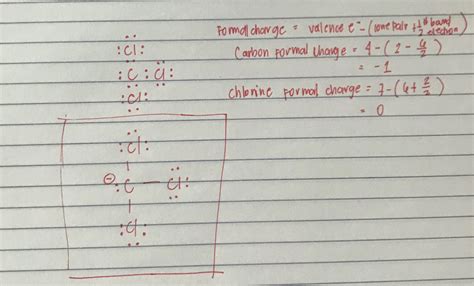 Formal charge = valence e⁻ - (lone pair + ½ # bound electron)
Carbon formal charge = 4 - (2 - 6/2)
= -1
Chlorine formal charge = 7 - (6 + 2/2)
= 0
:Cl:
:C:Cl:
:Cl:
:Cl:
⊖:C—Cl:
:Cl: